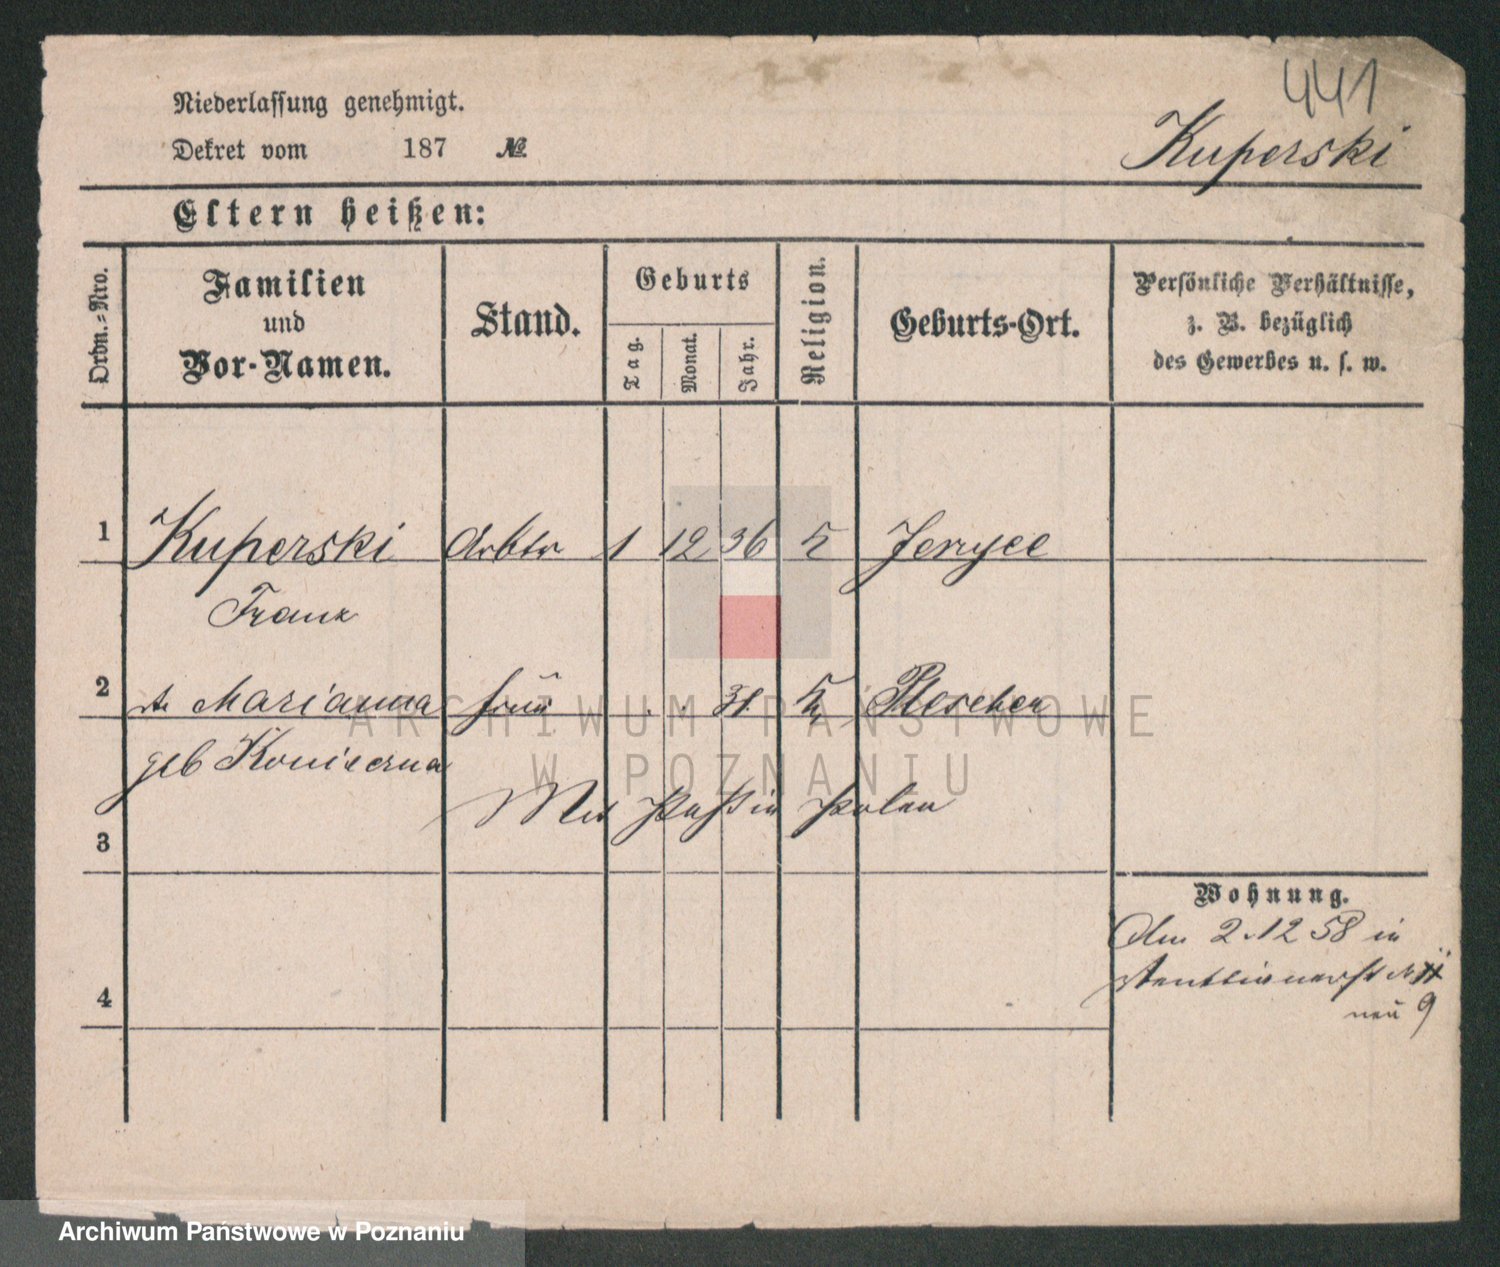 441
Niederlassung genehmigt.
Dekret vom 187 №
Kuperski
Eltern heißen:
Ordn.-Nro.
Familien
und
Vor-Namen.
Stand.
Geburts
Tag.
Monat.
Jahr.
Religion.
Geburts-Ort.
Persönliche Verhältnisse,
z. B. bezüglich
des Gewerbes u. s. w.
1 Kuperski Arbtr 1 12 36 Jerzyce
Franz
2 Marianna frau . . 31. Pleschen
geb Konieczna
Mit Paß in Polen
3
Wohnung.
Am 2.12 58 in
4
neu 9
ARCHIWUM PAŃSTWOWE
W POZNANIU
Archiwum Państwowe w Poznaniu